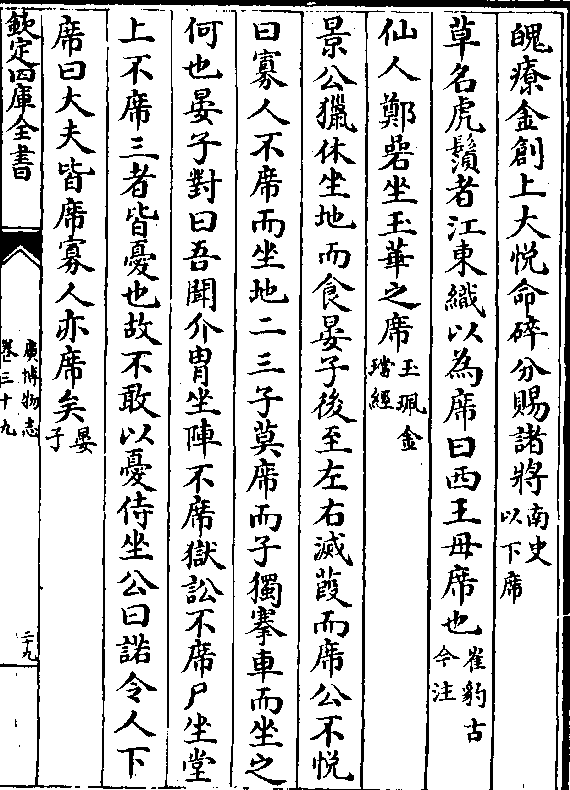 魄療金創上大悅命碎分賜諸將南史以下席
草名虎鬚者江東織以為席曰西王母席也崔豹古今注
仙人鄭砦坐玉華之席玉珮金璫經
景公獵休坐地而食晏子後至左右滅葭而席公不悅
曰寡人不席而坐地二三子莫席而子獨搴車而坐之
何也晏子對曰吾聞介胄坐陣不席獄訟不席尸坐堂
上不席三者皆憂也故不敢以憂侍坐公曰諾令人下
席曰大夫皆席寡人亦席矣晏子
欽定四庫全書
廣博物志
卷三十九
二九